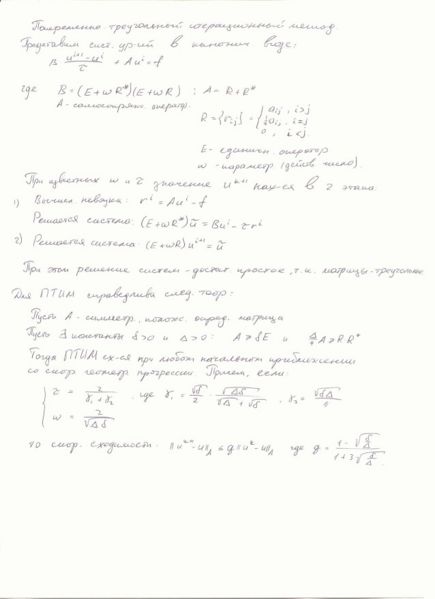 Попеременно треугольный итерационный метод.
Представим сист. ур-ий в каноном виде:
B (u^{i+1} - u^i)/τ + Au^i = f
где B = (E + ωR*)(E + ωR) ; A = R + R*
A - самосопряж. оператор.
R = {r_ij} = { a_ij, i>j ; ½a_ij, i=j ; 0, i<j
E - единичн. оператор
ω - параметр (действ число).
При известных ω и τ значение u^{i+1} нах-ся в 2 этапа.
1) Вычисл. невязка: r^i = Au^i - f
Решается система: (E + ωR*) ũ = Bu^i - τr^i
2) Решается система: (E + ωR) u^{i+1} = ũ
При этом решение систем - достат простое, т.к. матрицы - треугольные
Для ПТИМ справедлива след. теор-
Пусть A - симметр., полож. опред. матрица
Пусть ∃ константы δ>0 и Δ>0: A ≥ δE и Δ/4 A ≥ RR*
Тогда ПТИМ сх-ся при любом начальном приближении
со скор геометр прогрессии. Причем, если:
{ τ = 2/(γ₁+γ₂), где γ₁ = √δ/2 · √(Δδ)/(√Δ+√δ), γ₂ = √(δΔ)/4
ω = 2/√(Δδ)
то скор. сходимости: ||u^{i+1} - u||_A ≤ g||u^i - u||_A где g = (1 - √(δ/Δ))/(1 + 3√(δ/Δ)).